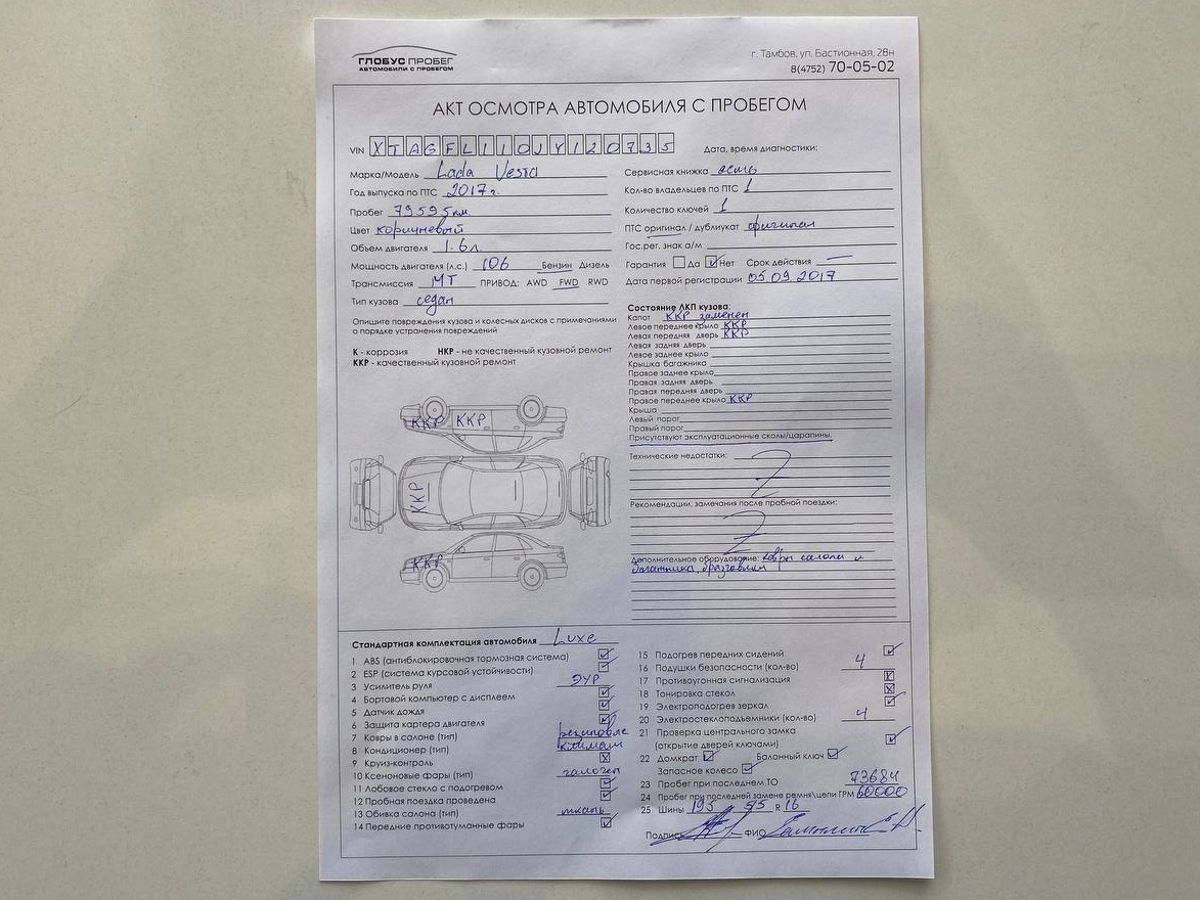 ГЛОБУС ПРОБЕГ
АВТОМОБИЛИ С ПРОБЕГОМ
г. Тамбов, ул. Бастионная, 28н
8(4752) 70-05-02
АКТ ОСМОТРА АВТОМОБИЛЯ С ПРОБЕГОМ
VIN XTAGFL110JY120735
Дата, время диагностики:
Марка/Модель Lada Vesta
Год выпуска по ПТС 2017 г.
Пробег 79595 км
Цвет коричневый
Объем двигателя 1.6 л
Мощность двигателя (л.с.) 106 Бензин Дизель
Трансмиссия МТ ПРИВОД: AWD FWD RWD
Тип кузова седан
Опишите повреждения кузова и колесных дисков с примечаниями
о порядке устранения повреждений
К - коррозия НКР - не качественный кузовной ремонт
ККР - качественный кузовной ремонт
ККР ККР
ККР
ККР
Сервисная книжка есть
Кол-во владельцев по ПТС 1
Количество ключей 1
ПТС оригинал / дубликат оригинал
Гос.рег. знак а/м
Гарантия Да Нет Срок действия —
Дата первой регистрации 05.09.2017
Состояние ЛКП кузова:
Капот ККР заменен
Левое переднее крыло ККР
Левая передняя дверь ККР
Левая задняя дверь
Левое заднее крыло
Крышка багажника
Правое заднее крыло
Правая задняя дверь
Правая передняя дверь
Правое переднее крыло ККР
Крыша
Левый порог
Правый порог
Присутствуют эксплуатационные сколы/царапины.
Технические недостатки:
Рекомендации, замечания после пробной поездки:
Дополнительное оборудование: ковры салона и
багажника, брызговики
Стандартная комплектация автомобиля Luxe
1 ABS (антиблокировочная тормозная система)
2 ESP (система курсовой устойчивости)
3 Усилитель руля ЭУР
4 Бортовой компьютер с дисплеем
5 Датчик дождя
6 Защита картера двигателя
7 Ковры в салоне (тип) резиновые
8 Кондиционер (тип) климат
9 Круиз-контроль
10 Ксеноновые фары (тип) галоген
11 Лобовое стекло с подогревом
12 Пробная поездка проведена
13 Обивка салона (тип) ткань
14 Передние противотуманные фары
15 Подогрев передних сидений
16 Подушки безопасности (кол-во) 4
17 Противоугонная сигнализация
18 Тонировка стекол
19 Электроподогрев зеркал
20 Электростеклоподъемники (кол-во) 4
21 Проверка центрального замка
(открытие дверей ключами)
22 Домкрат Балонный ключ
Запасное колесо
23 Пробег при последнем ТО 73684
24 Пробег при последней замене ремня\цепи ГРМ 60000
25 Шины 195 55 R 16
Подпись ФИО